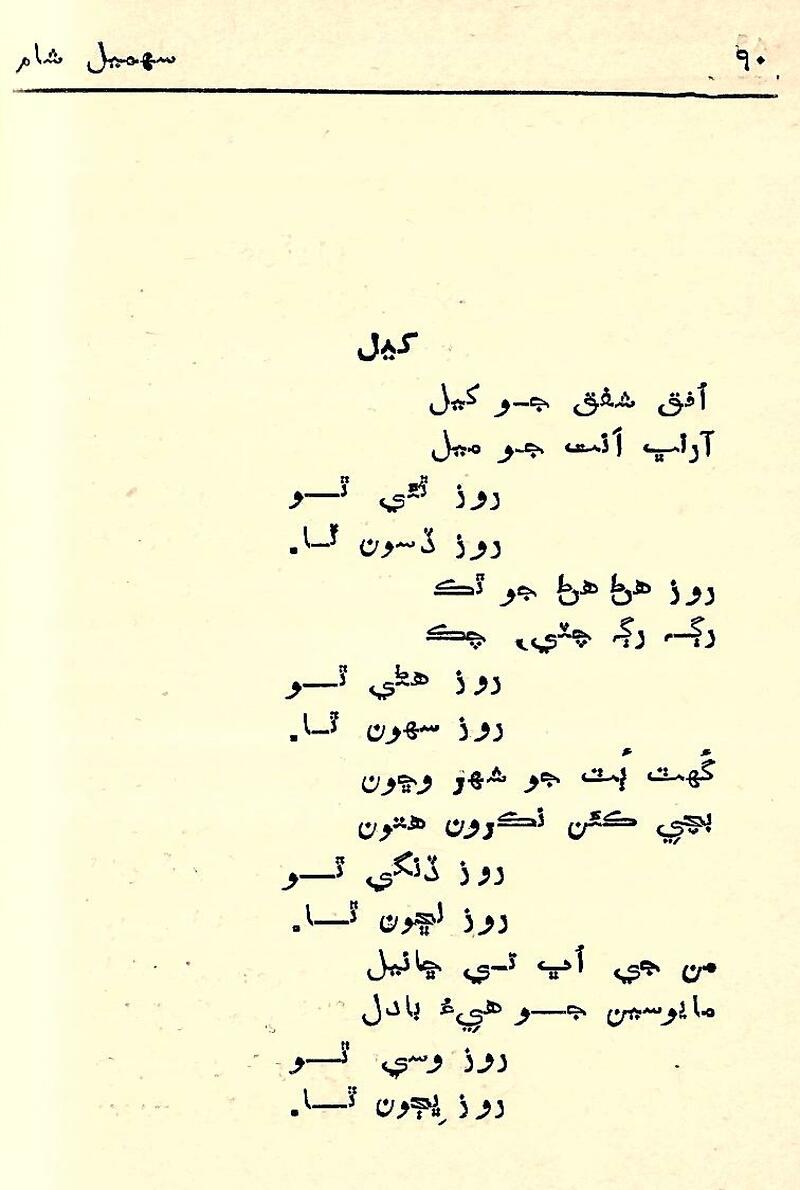 ٩٠ سهميل شام
کيل
اُفق شفق جو کيل
آرنڀ اَنت جو ميل
روز ٿئي ٿو
روز ڏسون ٿا.
روز هڻ هڻ جو ٿڪ
رڳ رڳ چٽي، چڪ
روز هڻي ٿو
روز سهون ٿا.
گُهٽ ٻُٽ جو شهر وڇون
بچي ڪٿن نڪرون هتون
روز ڏنگي ٿو
روز لڇون ٿا.
من جي اُڀ تي ڇانيل
مايوسين جو هيءُ بادل
روز وسي ٿو
روز ڀڄون ٿا.